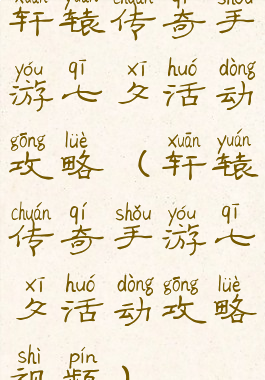 xuān yuán chuán qí shǒu
轩 辕 传 奇 手
yóu qī xī huó dòng
游 七 夕 活 动
gōng lüè xuān yuán
攻 略 （ 轩 辕
chuán qí shǒu yóu qī
传 奇 手 游 七
xī huó dòng gōng lüè
夕 活 动 攻 略
shì pín
视 频 ）